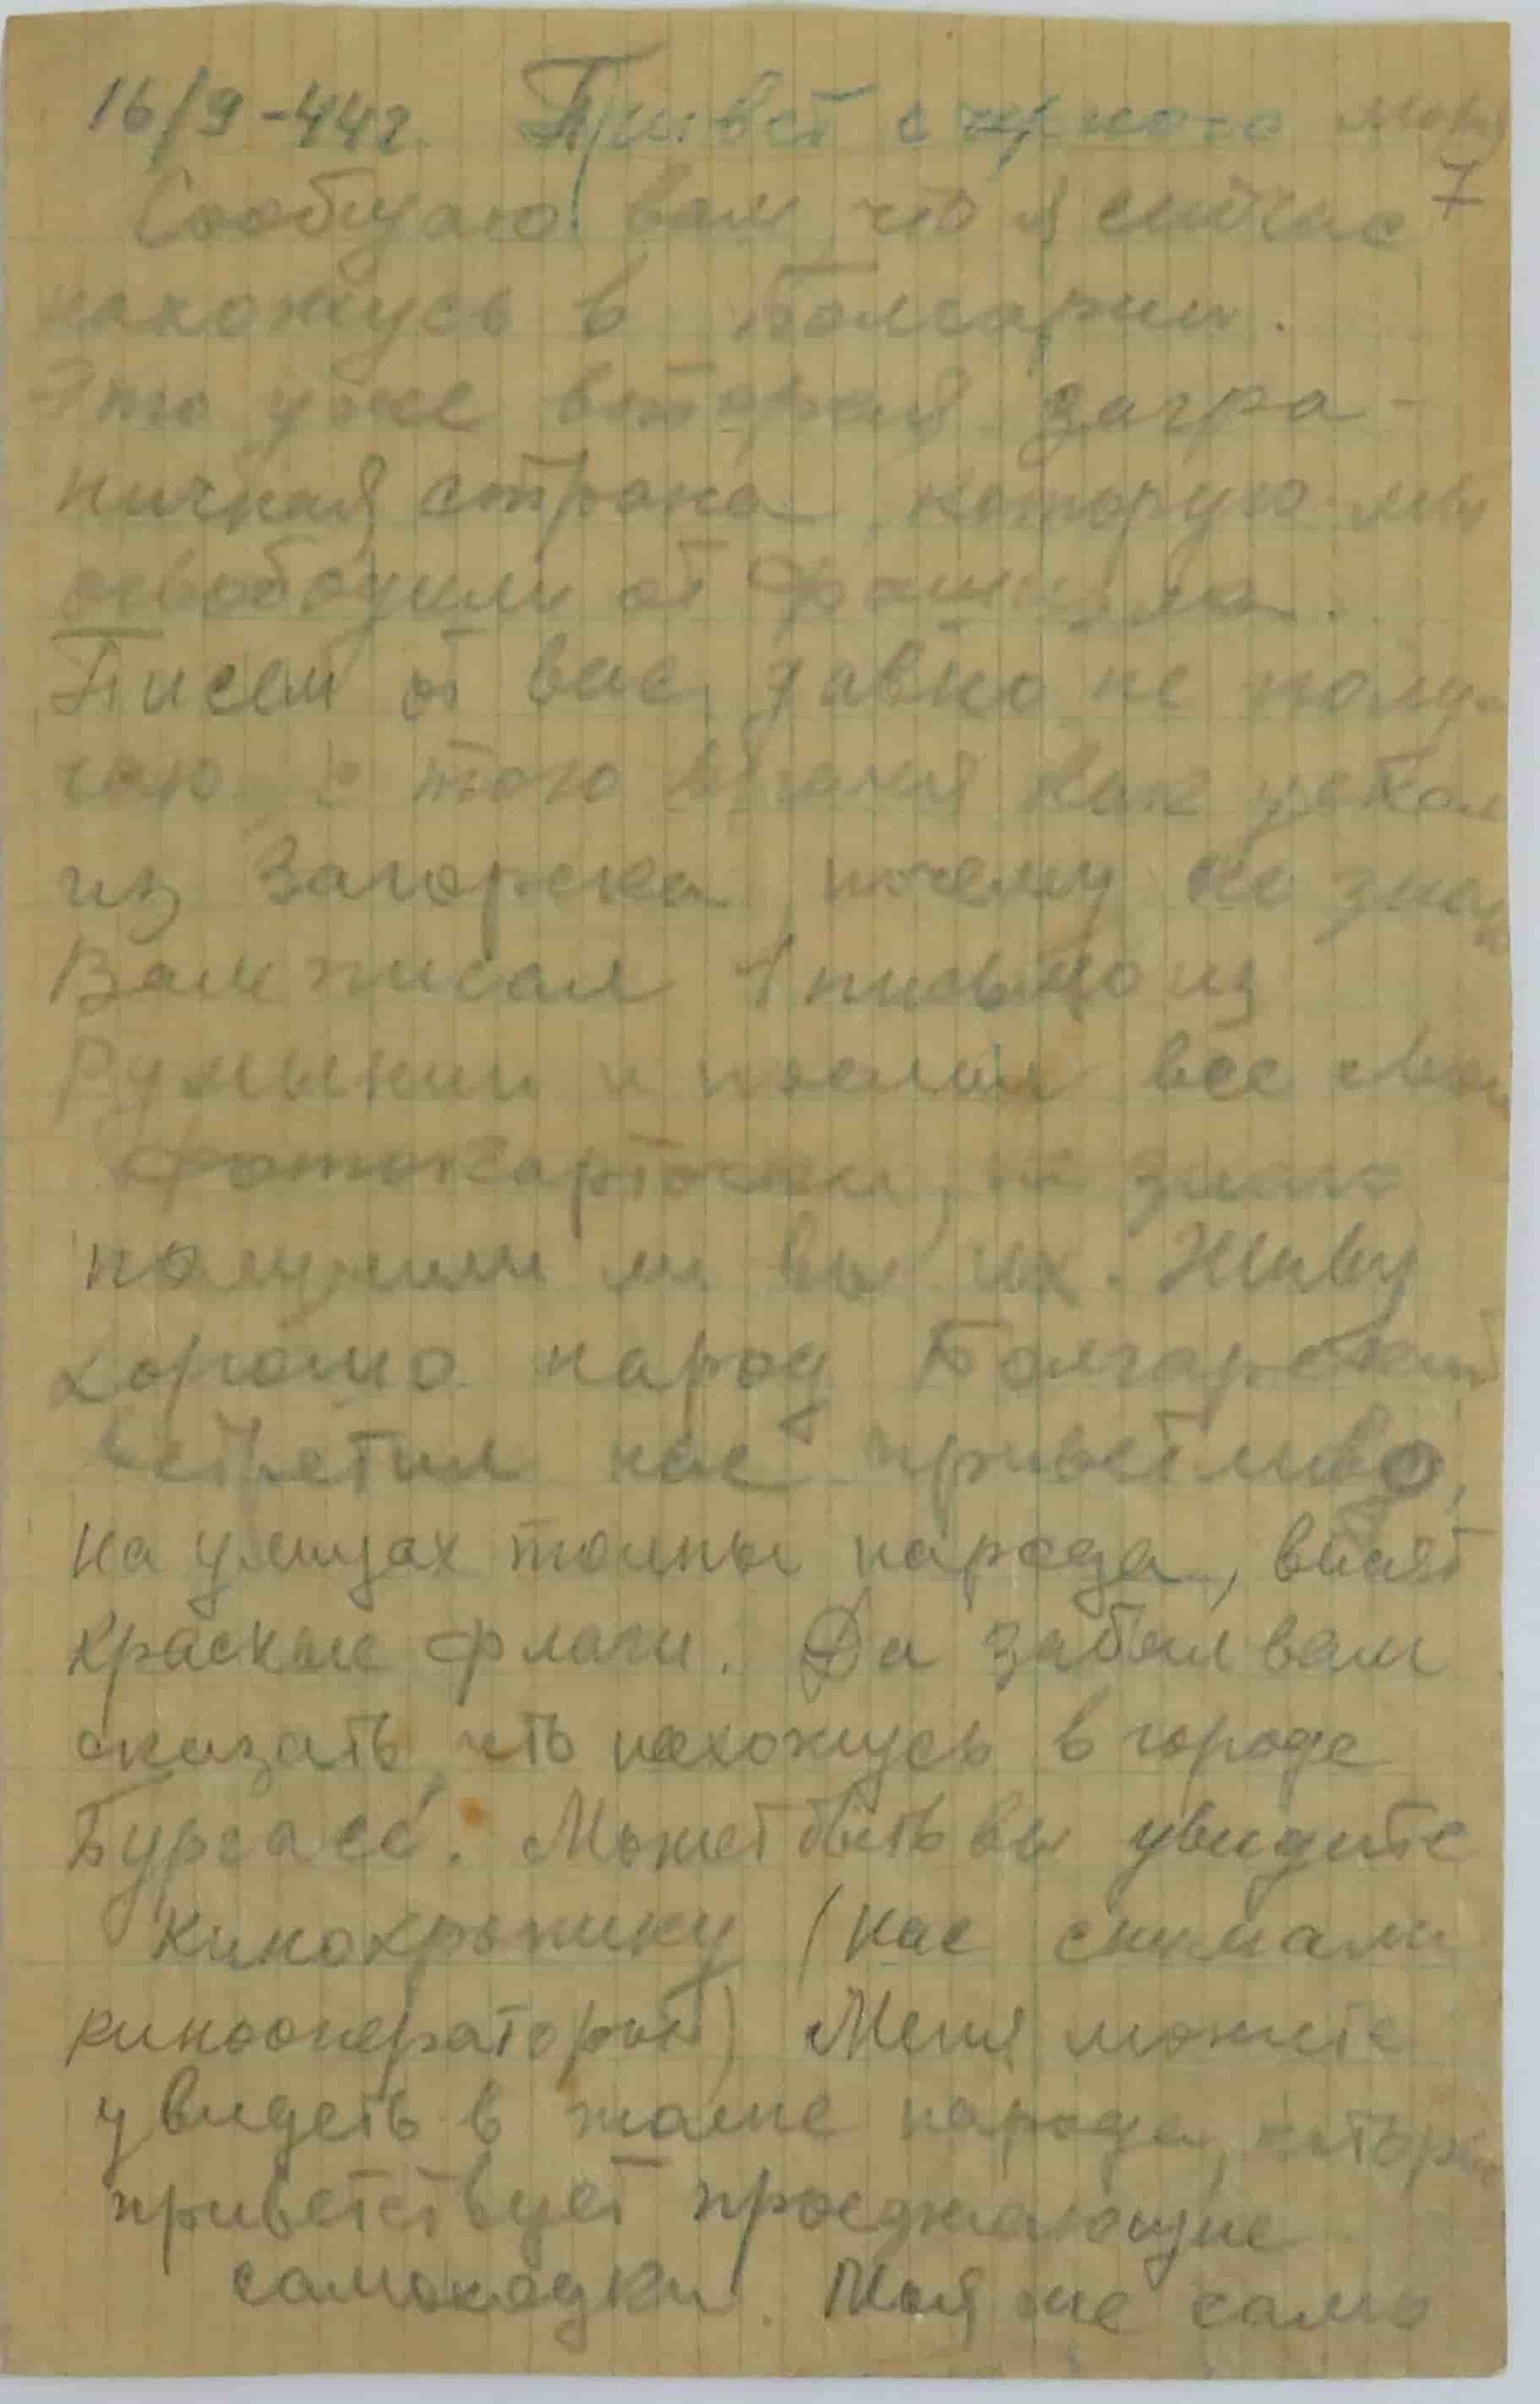 16/9-44г. Привет с черного моря
7
Сообщаю вам, что я сейчас
нахожусь в Болгарии.
Это уже вторая загра-
ничная страна, которую мы
освободили от фашизма.
Писем от вас давно не полу-
чаю, с того время как уехал
из Загорска, почему не знаю
Вам писал 1 письмо из
Румынии и послал все свои
фотокарточки, не знаю
получили ли вы их. Живу
хорошо народ Болгарский
встретил нас приветливо,
на улицах толпы народа, висят
красные флаги. Да забыл вам
сказать, что нахожусь в городе
Бургасе. Может быть вы увидите
кинохронику (нас снимали
кинооператоры) Меня можете
увидеть в толпе народа, который
приветствует проезжающие
самоходки. Моя же само